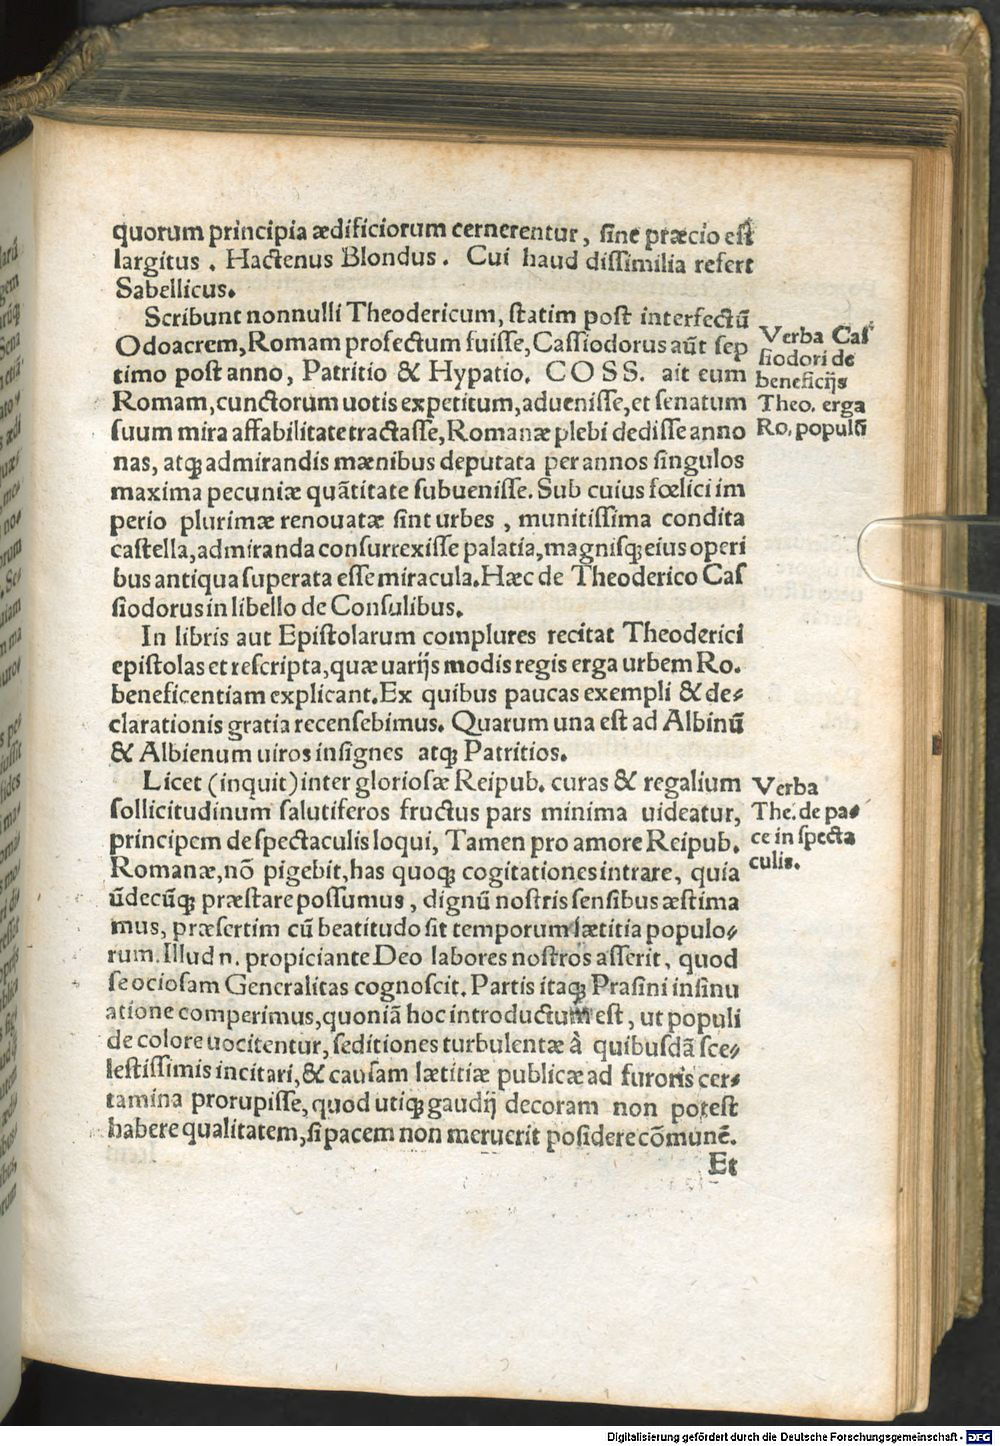 quorum principia ædificiorum cernerentur, sine præcio est
largitus. Hactenus Blondus. Cui haud dissimilia refert
Sabellicus.
Scribunt nonnulli Theodericum, statim post interfectū
Odoacrem, Romam profectum fuisse, Cassiodorus aūt sep
timo post anno, Patritio & Hypatio. COSS. ait eum
Romam, cunctorum uotis expetitum, aduenisse, et senatum
suum mira affabilitate tractasse, Romanæ plebi dedisse anno
nas, atq; admirandis mænibus deputata per annos singulos
maxima pecuniæ quātitate subuenisse. Sub cuius fœlici im
perio plurimæ renouatæ sint urbes, munitissima condita
castella, admiranda consurrexisse palatia, magnisq; eius operi
bus antiqua superata esse miracula. Hæc de Theoderico Cas
siodorus in libello de Consulibus.
Verba Cas
siodori de
beneficijs
Theo. erga
Ro. populū
In libris aut Epistolarum complures recitat Theoderici
epistolas et rescripta, quæ uarijs modis regis erga urbem Ro.
beneficentiam explicant. Ex quibus paucas exempli & de-
clarationis gratia recensebimus. Quarum una est ad Albinū
& Albienum uiros insignes atq; Patritios.
Licet (inquit) inter gloriosæ Reipub. curas & regalium
sollicitudinum salutiferos fructus pars minima uideatur,
principem de spectaculis loqui, Tamen pro amore Reipub.
Romanæ, nō pigebit, has quoq; cogitationes intrare, quia
ūdecūq; præstare possumus, dignū nostris sensibus æstima
mus, præsertim cū beatitudo sit temporum lætitia populo-
rum. Illud n. propiciante Deo labores nostros asserit, quod
se ociosam Generalitas cognoscit. Partis itaq; Prasini insinu
atione comperimus, quoniā hoc introductum est, ut populi
de colore uocitentur, seditiones turbulentæ à quibusdā sce-
lestissimis incitari, & causam lætitiæ publicæ ad furoris cer-
tamina prorupisse, quod utiq; gaudij decoram non potest
habere qualitatem, si pacem non meruerit posidere cōmunē.
Verba
The. de pa-
ce in specta
culis.
Et
Digitalisierung gefördert durch die Deutsche Forschungsgemeinschaft - DFG